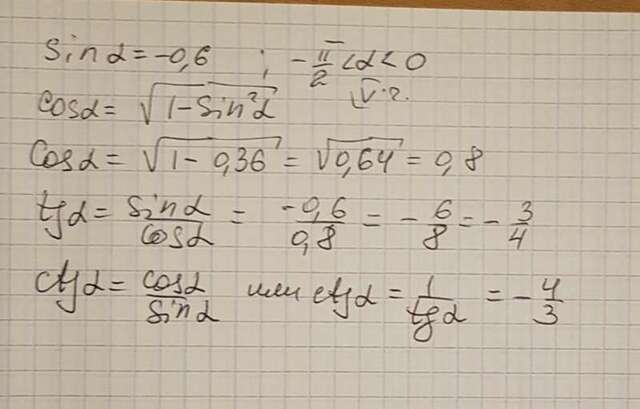 sinα = -0,6 ; -π/2 < α < 0
IV ч.
cosα = √(1 - sin²α)
cosα = √(1 - 0,36) = √0,64 = 0,8
tgα = sinα/cosα = -0,6/0,8 = -6/8 = -3/4
ctgα = cosα/sinα или ctgα = 1/tgα = -4/3